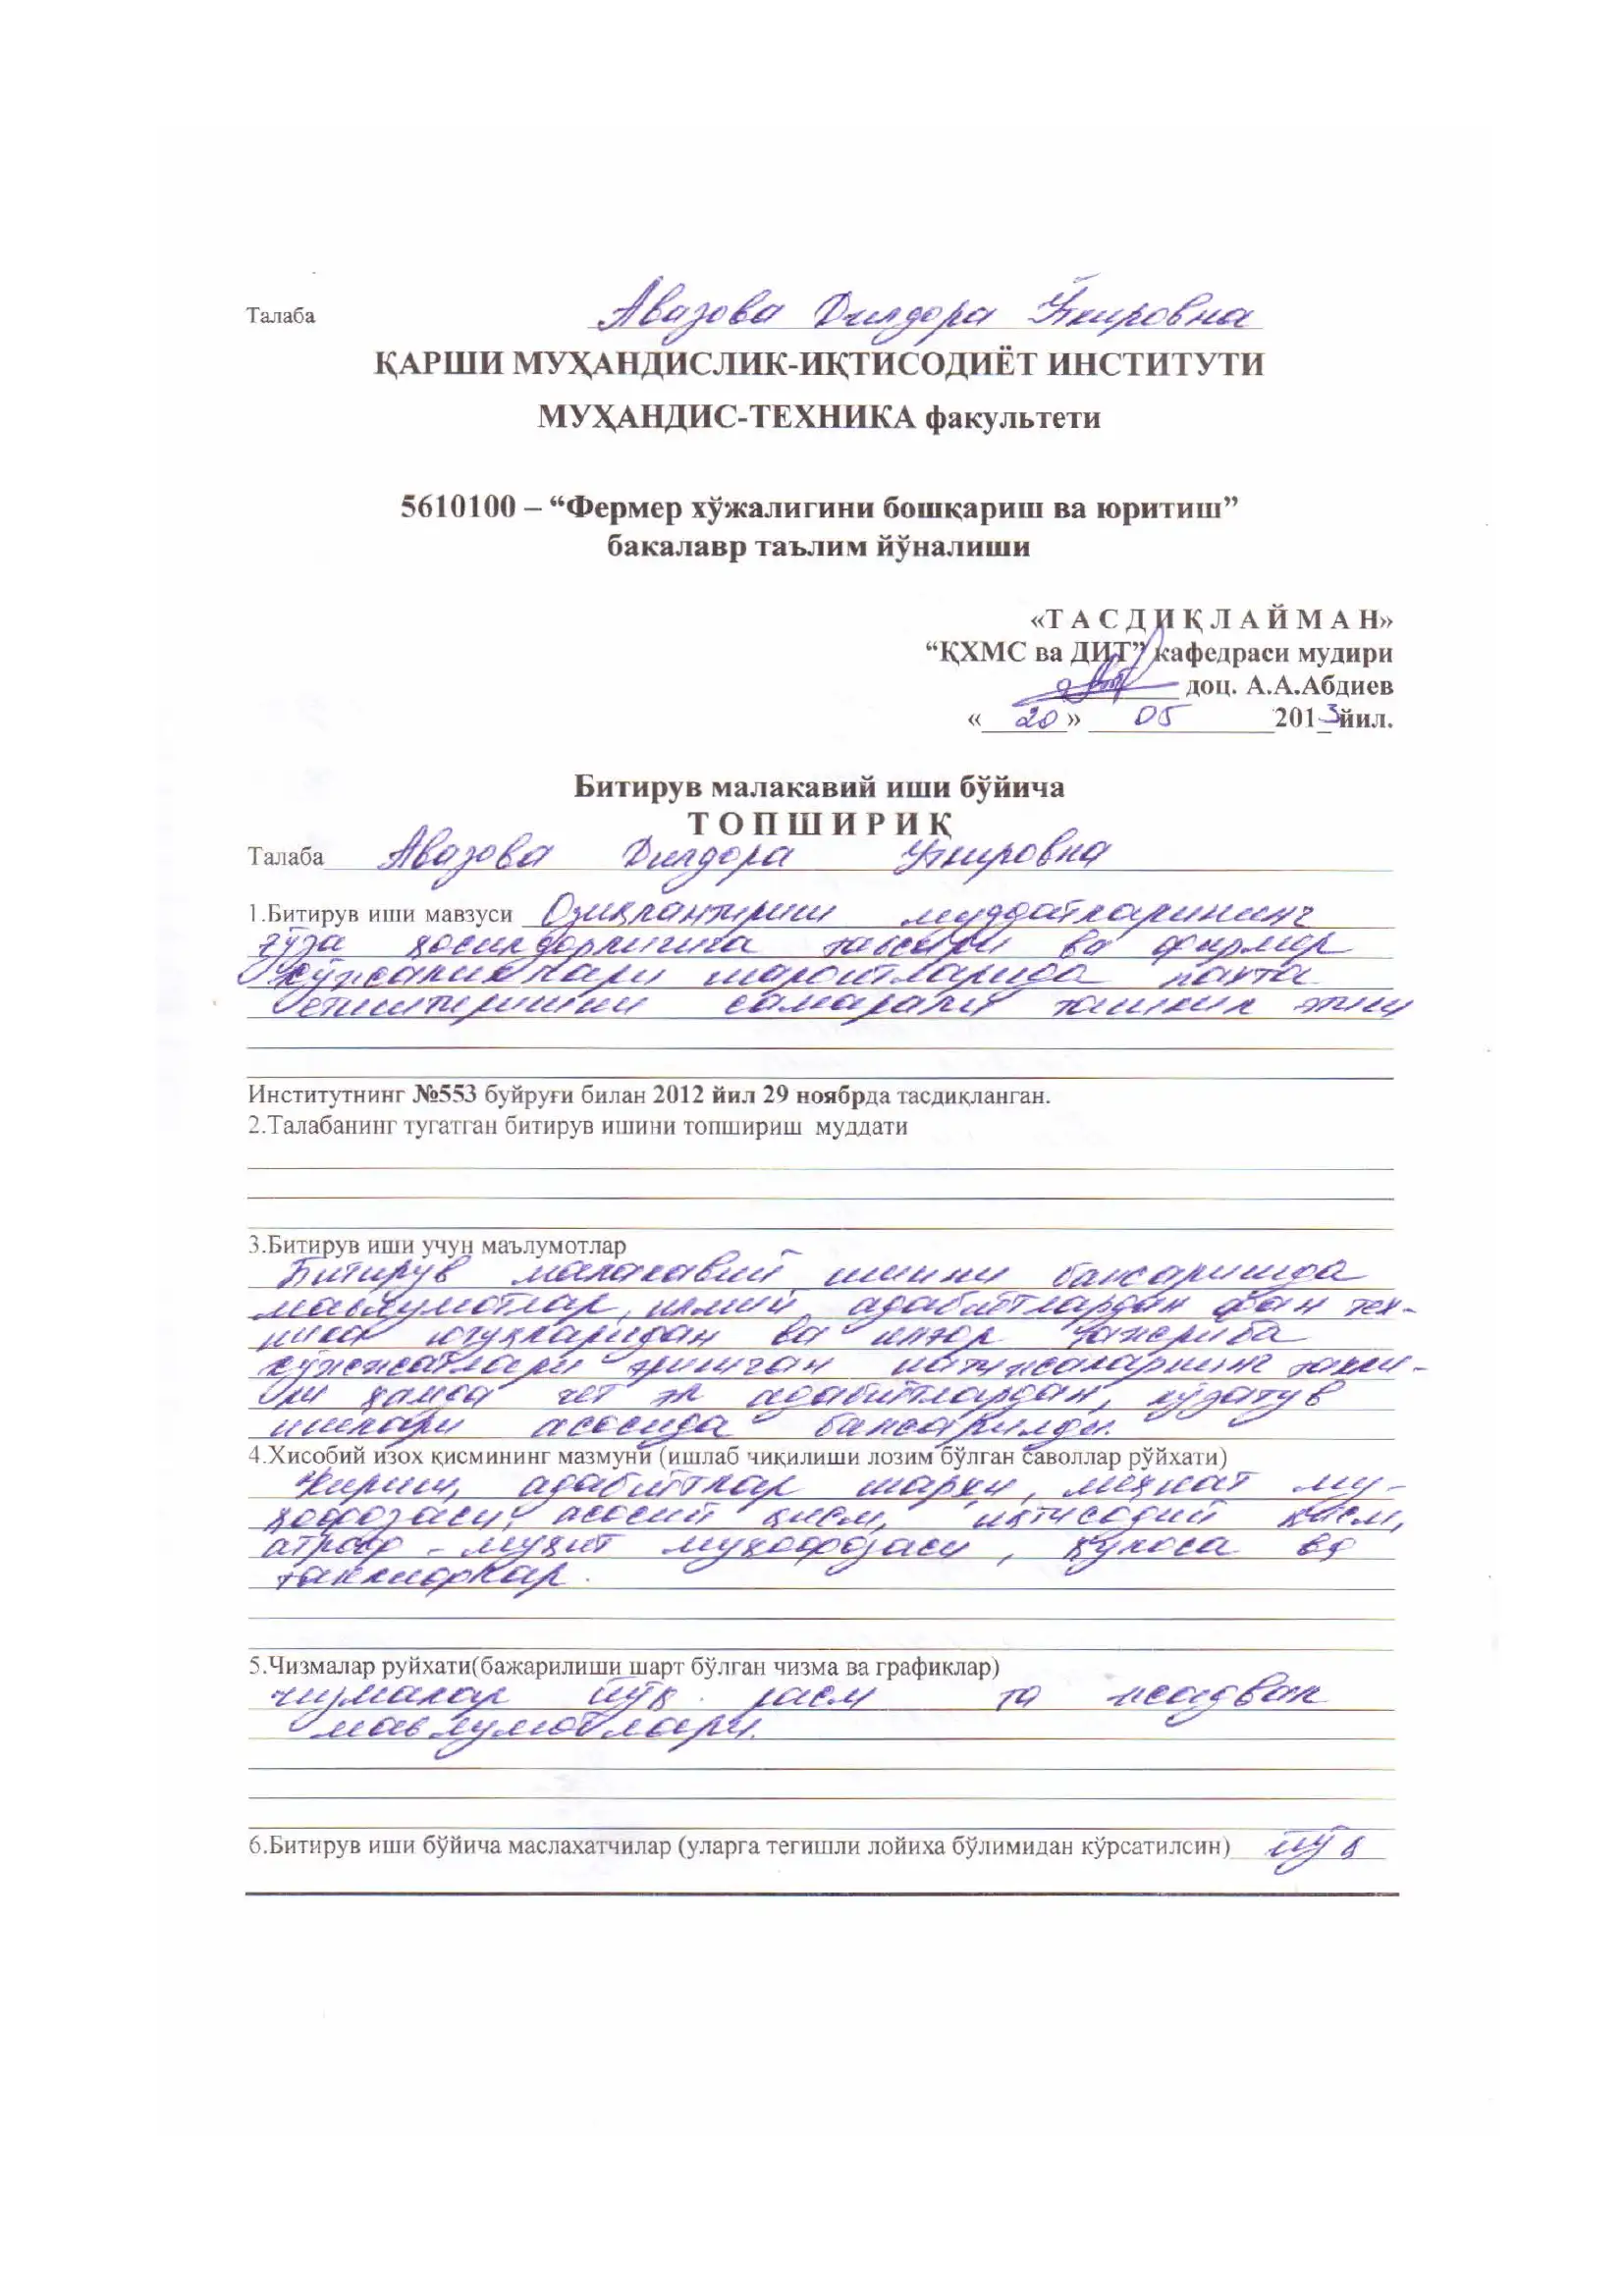 Талаба Авазова Дилдора Ўткировна
ҚАРШИ МУҲАНДИСЛИК-ИҚТИСОДИЁТ ИНСТИТУТИ
МУҲАНДИС-ТЕХНИКА факультети
5610100 – “Фермер хўжалигини бошқариш ва юритиш”
бакалавр таълим йўналиши
«Т А С Д И Қ Л А Й М А Н»
“ҚХМС ва ДИТ” кафедраси мудири
доц. А.А.Абдиев
« 20 » 05 2013 йил.
Битирув малакавий иши бўйича
Т О П Ш И Р И Қ
Талаба Авазова Дилдора Ўткировна
1.Битирув иши мавзуси Озиқлантириш муддатларининг
ғўза ҳосилдорлигига таъсири ва фермер
хўжаликлари шароитларида пахта
етиштиришни самарали ташкил этиш
Институтнинг №553 буйруғи билан 2012 йил 29 ноябрда тасдиқланган.
2.Талабанинг тугатган битирув ишини топшириш муддати
3.Битирув иши учун маълумотлар
Битирув малакавий ишини бажаришда
маълумотлар, илмий адабиётлардан фан тех-
ника ютуқларидан ва илғор тажриба
эришган натижаларнинг
ҳамда чет эл адабиётлардан, кузатув
ишлари асосида бажарилди.
4.Хисобий изох қисмининг мазмуни (ишлаб чиқилиши лозим бўлган саволлар рўйхати)
Кириш, адабиётлар шарҳи, меҳнат му-
ҳофазаси, асосий қисм, иқтисодий қисм,
атроф-муҳит муҳофазаси, хулоса ва
таклифлар.
5.Чизмалар руйхати(бажарилиши шарт бўлган чизма ва графиклар)
чизмалар йўқ. расм та жадвал
маълумотлари.
6.Битирув иши бўйича маслахатчилар (уларга тегишли лойиха бўлимидан кўрсатилсин) йўқ